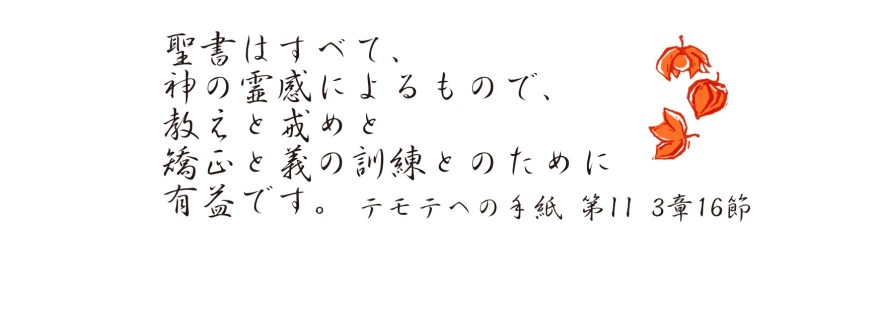 聖書はすべて、
神の霊感によるもので、
教えと戒めと
矯正と義の訓練とのために
有益です。 テモテへの手紙 第11 3章16節